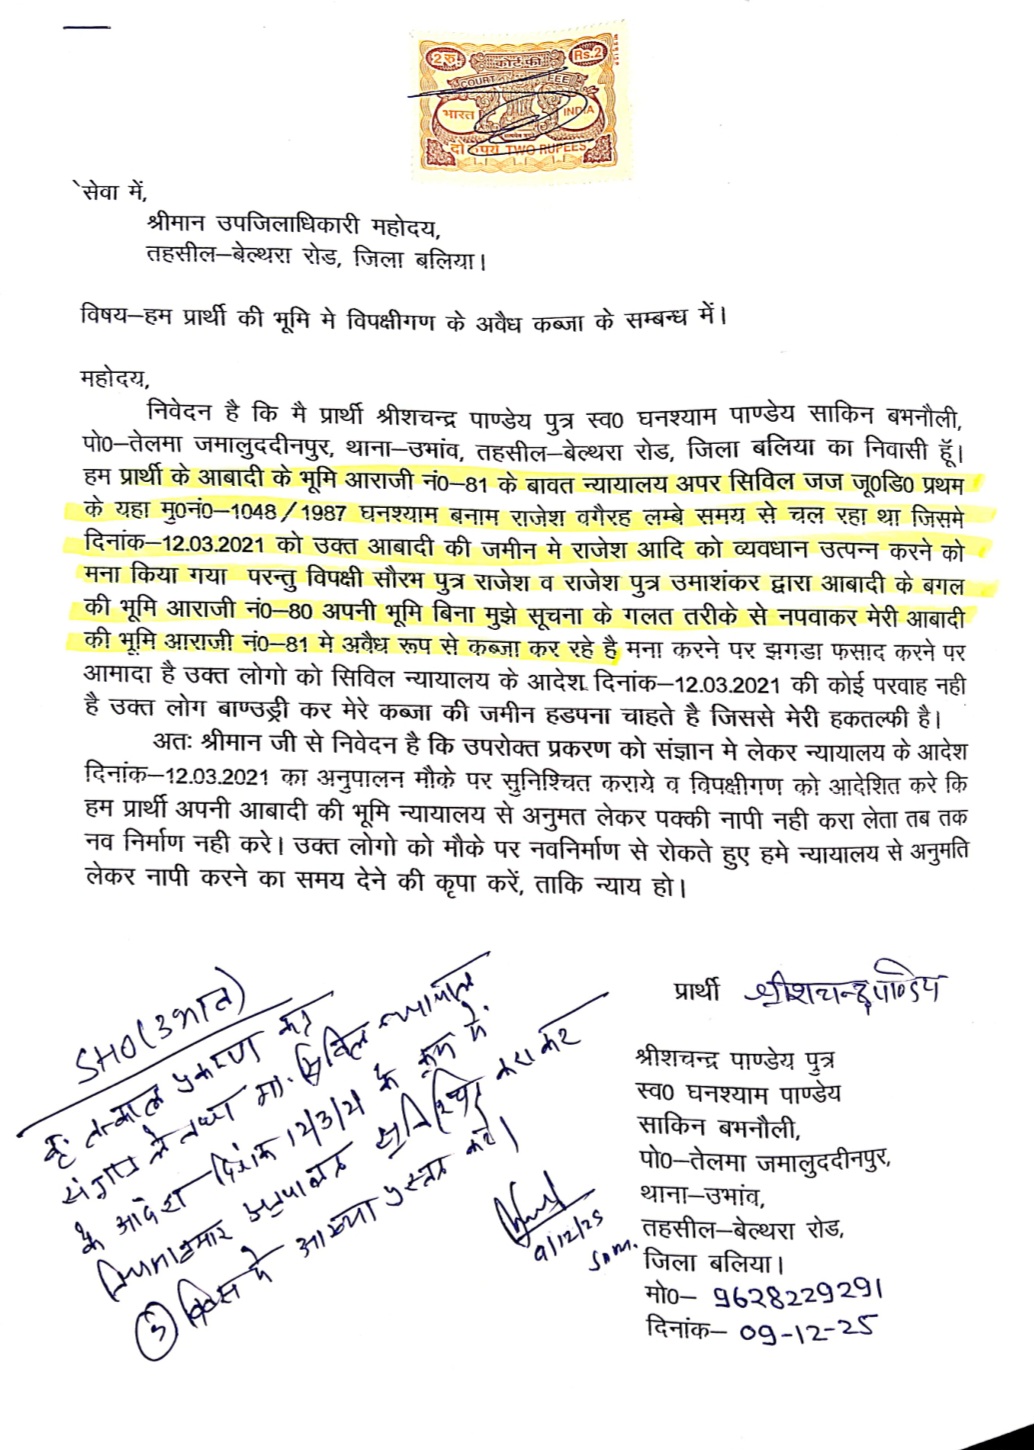 2रु. कोर्ट-फी Rs.2
COURT FEE
भारत INDIA
दो रुपये TWO RUPEES
`सेवा में,
श्रीमान उपजिलाधिकारी महोदय,
तहसील–बेल्थरा रोड, जिला बलिया।
विषय–हम प्रार्थी की भूमि मे विपक्षीगण के अवैध कब्जा के सम्बन्ध में।
महोदय,
निवेदन है कि मै प्रार्थी श्रीशचन्द्र पाण्डेय पुत्र स्व0 घनश्याम पाण्डेय साकिन बभनौली,
पो0–तेलमा जमालुददीनपुर, थाना–उभांव, तहसील–बेल्थरा रोड, जिला बलिया का निवासी हूॅ।
हम प्रार्थी के आबादी के भूमि आराजी नं0–81 के बावत न्यायालय अपर सिविल जज जू0डि0 प्रथम
के यहा मु0नं0–1048/1987 घनश्याम बनाम राजेश वगैरह लम्बे समय से चल रहा था जिसमे
दिनांक–12.03.2021 को उक्त आबादी की जमीन मे राजेश आदि को व्यवधान उत्पन्न करने को
मना किया गया परन्तु विपक्षी सौरभ पुत्र राजेश व राजेश पुत्र उमाशंकर द्वारा आबादी के बगल
की भूमि आराजी नं0–80 अपनी भूमि बिना मुझे सूचना के गलत तरीके से नपवाकर मेरी आबादी
की भूमि आराजी नं0–81 मे अवैध रूप से कब्जा कर रहे है मना करने पर झगडा फसाद करने पर
आमादा है उक्त लोगो को सिविल न्यायालय के आदेश दिनांक–12.03.2021 की कोई परवाह नही
है उक्त लोग बाण्उड्री कर मेरे कब्जा की जमीन हडपना चाहते है जिससे मेरी हकतल्फी है।
अतः श्रीमान जी से निवेदन है कि उपरोक्त प्रकरण को संज्ञान मे लेकर न्यायालय के आदेश
दिनांक–12.03.2021 का अनुपालन मौके पर सुनिश्चित कराये व विपक्षीगण को आदेशित करे कि
हम प्रार्थी अपनी आबादी की भूमि न्यायालय से अनुमत लेकर पक्की नापी नही करा लेता तब तक
नव निर्माण नही करे। उक्त लोगो को मौके पर नवनिर्माण से रोकते हुए हमे न्यायालय से अनुमति
लेकर नापी करने का समय देने की कृपा करें, ताकि न्याय हो।
प्रार्थी श्रीशचन्द्र पाण्डेय
श्रीशचन्द्र पाण्डेय पुत्र
स्व0 घनश्याम पाण्डेय
साकिन बभनौली,
पो0–तेलमा जमालुददीनपुर,
थाना–उभांव,
तहसील–बेल्थरा रोड,
जिला बलिया।
मो0– 9628229291
दिनांक– 09-12-25
SHO (उभांव)
कृ. तत्काल प्रकरण का
संज्ञान ले तथा मा. सिविल न्यायालय
के आदेश दिनांक 12/3/21 के क्रम में
नियमानुसार अनुपालन सुनिश्चित कराकर
③ दिवस में आख्या प्रस्तुत करें।
9/12/25
SDM.